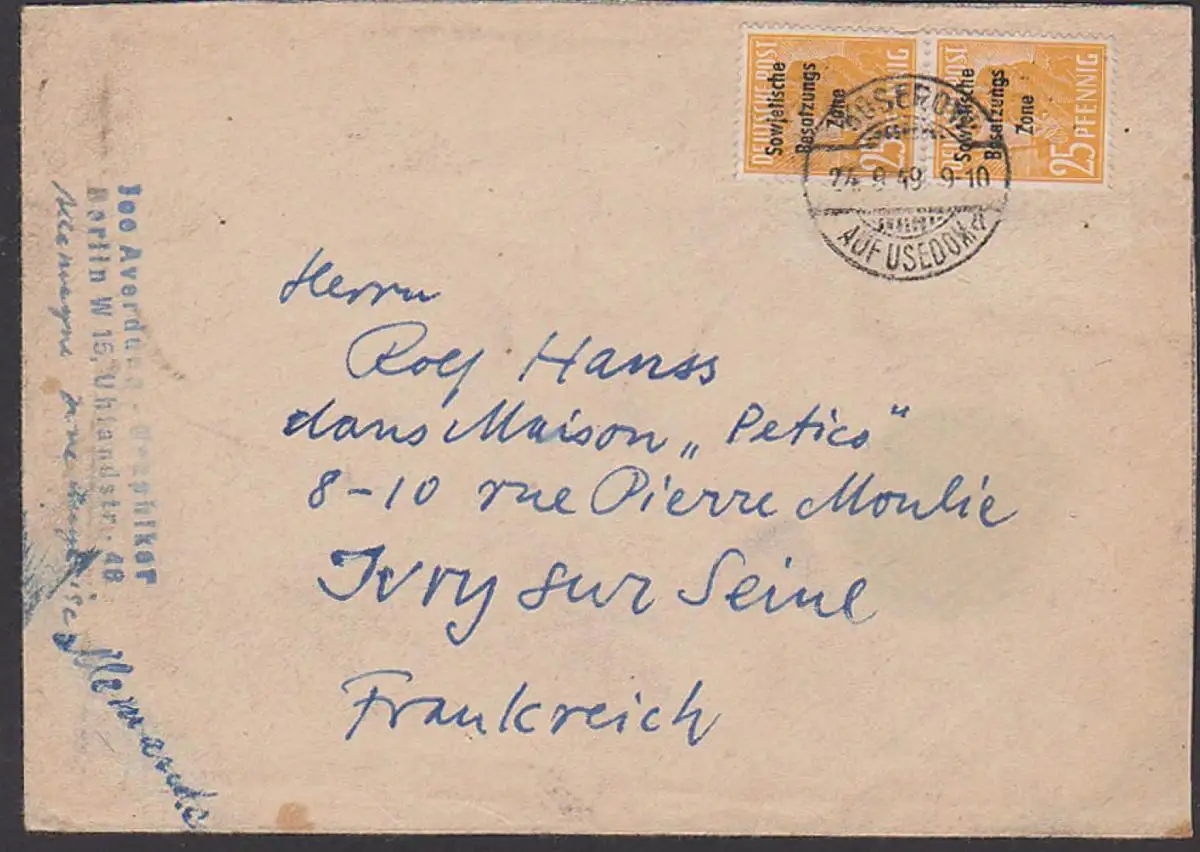 DEUTSCHE POST
Sowjetische
Besatzungs
Zone
25
Sowjetische
Besatzungs
Zone
25 PFENNIG
24.9.49 9-10
AUF USEDOM
Herrn
Rolf Hanss
dans Maison „Petico"
8-10 rue Pierre Moulie
Ivry sur Seine
Frankreich
Joo Averdung - Graphiker
Berlin W 15, Uhlandstr. 48
Allemagne
Allemande